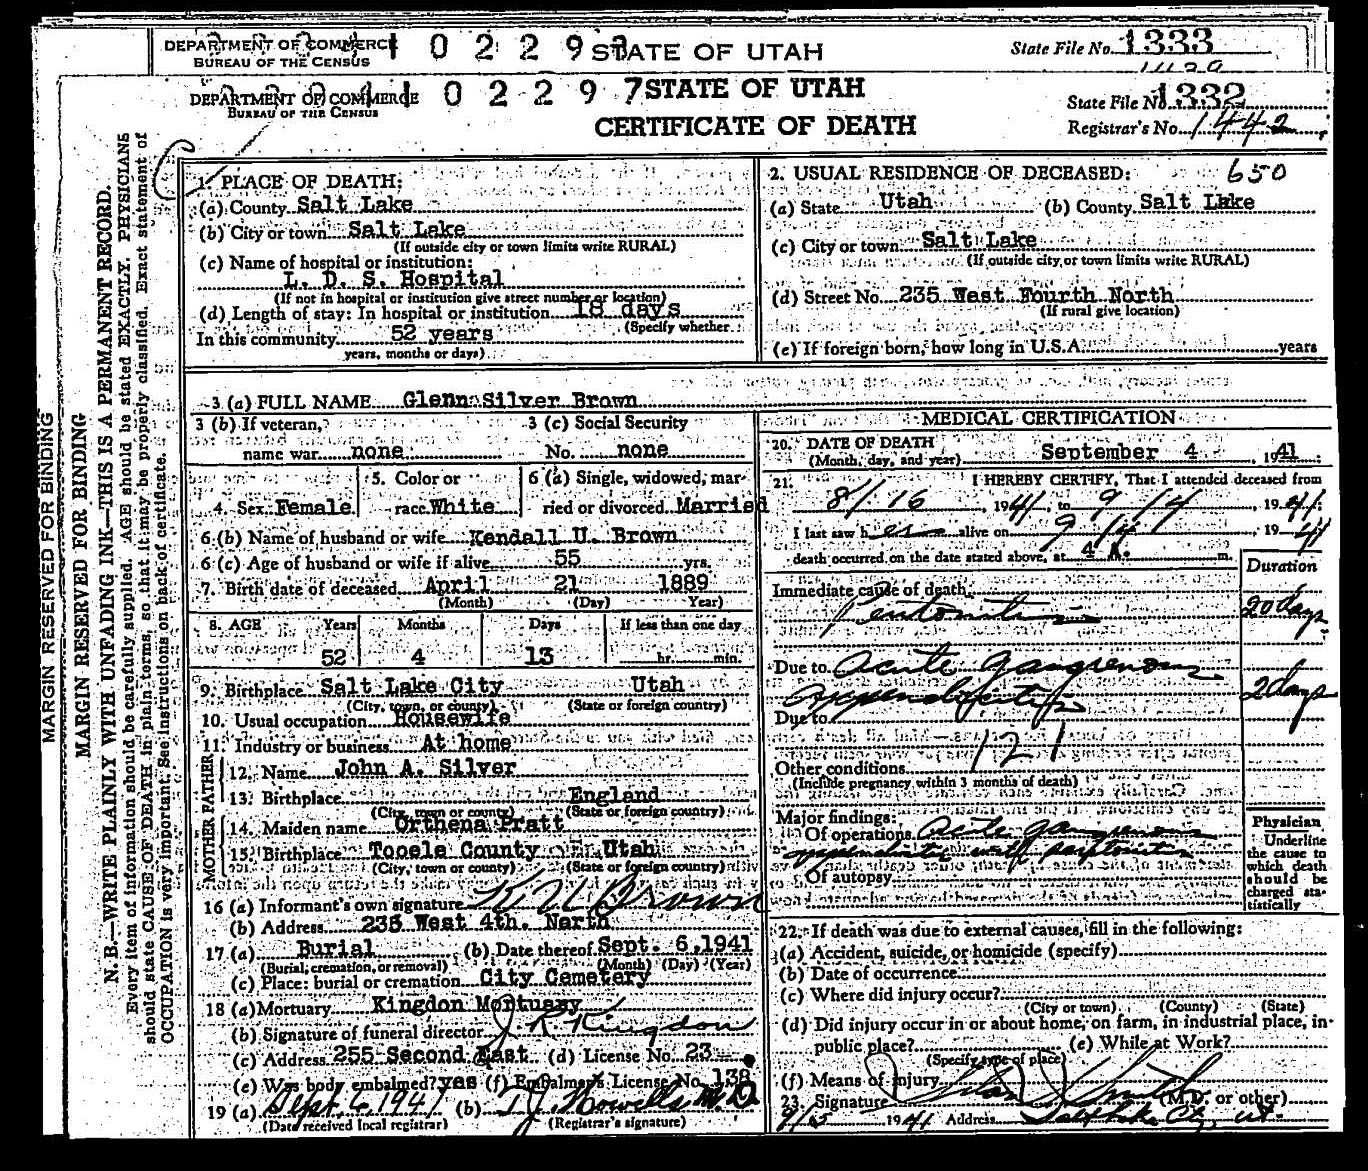 DEPARTMENT OF COMMERCE
BUREAU OF THE CENSUS
0 2 2 9
STATE OF UTAH
State File No. 1333
DEPARTMENT OF COMMERCE
BUREAU OF THE CENSUS
0 2 2 9 7
STATE OF UTAH
CERTIFICATE OF DEATH
State File No. 1332
Registrar's No. 1442
MARGIN RESERVED FOR BINDING
MARGIN RESERVED FOR BINDING
N. B.—WRITE PLAINLY WITH UNFADING INK—THIS IS A PERMANENT RECORD.
Every item of information should be carefully supplied. AGE should be stated EXACTLY. PHYSICIANS
should state CAUSE OF DEATH in plain terms, so that it may be properly classified. Exact statement of
OCCUPATION is very important. See instructions on back of certificate.
1. PLACE OF DEATH:
(a) County Salt Lake
(b) City or town Salt Lake
(If outside city or town limits write RURAL)
(c) Name of hospital or institution:
L. D. S. Hospital
(If not in hospital or institution give street number or location)
(d) Length of stay: In hospital or institution 18 days
(Specify whether
In this community 52 years
years, months or days)
2. USUAL RESIDENCE OF DECEASED: 650
(a) State Utah (b) County Salt Lake
(c) City or town Salt Lake
(If outside city or town limits write RURAL)
(d) Street No. 235 West Fourth North
(If rural give location)
(e) If foreign born, how long in U.S.A. years
3 (a) FULL NAME Glenn Silver Brown
3 (b) If veteran,
name war none
3 (c) Social Security
No. none
4. Sex Female
5. Color or
race White
6 (a) Single, widowed, mar-
ried or divorced Married
6 (b) Name of husband or wife Kendall U. Brown
6 (c) Age of husband or wife if alive 55 yrs.
7. Birth date of deceased April 21 1889
(Month) (Day) Year)
8. AGE Years Months Days If less than one day
52 4 13 hr. min.
9. Birthplace Salt Lake City Utah
(City, town, or county) (State or foreign country)
10. Usual occupation Housewife
11. Industry or business At home
FATHER
12. Name John A. Silver
13. Birthplace England
(City, town or county) (State or foreign country)
MOTHER
14. Maiden name Orthena Pratt
15. Birthplace Tooele County Utah
(City, town or county) (State or foreign country)
16 (a) Informant's own signature K U Brown
(b) Address 235 West 4th. North
17 (a) Burial (b) Date thereof Sept. 6,1941
(Burial, cremation, or removal) (Month) (Day) (Year)
(c) Place: burial or cremation City Cemetery
18 (a) Mortuary Kingdon Mortuary
(b) Signature of funeral director J R Kingdon
(c) Address 255 Second East (d) License No. 23
(e) Was body embalmed? yes (f) Embalmer's License No. 138
19 (a) Sept. 6, 1941 (b) T J Howells M.D.
(Date received local registrar) (Registrar's signature)
MEDICAL CERTIFICATION
20. DATE OF DEATH
(Month, day, and year) September 4, 1941
21. I HEREBY CERTIFY, That I attended deceased from
8/16, 1941, to 9/4, 1941;
I last saw her alive on 9/4, 1941
death occurred on the date stated above, at 4 A. m.
Duration
Immediate cause of death
Peritonitis 20 days
Due to Acute gangrenous
appendicitis 2 days
Due to
121
Other conditions
(Include pregnancy within 3 months of death)
Major findings:
Of operations Acute gangrenous
appendicitis with peritonitis
Of autopsy
Physician
Underline
the cause to
which death
should be
charged sta-
tistically
22. If death was due to external causes, fill in the following:
(a) Accident, suicide, or homicide (specify)
(b) Date of occurrence
(c) Where did injury occur?
(City or town) (County) (State)
(d) Did injury occur in or about home, on farm, in industrial place, in
public place? (e) While at Work?
(Specify type of place)
(f) Means of injury
23. Signature Smith (M.D. or other)
9/5 1941 Address Salt Lake City, Ut.